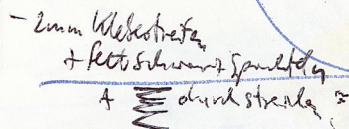 - 2mm Klebestreifen
+ fett schwarz spachteln
+ durchstreichen